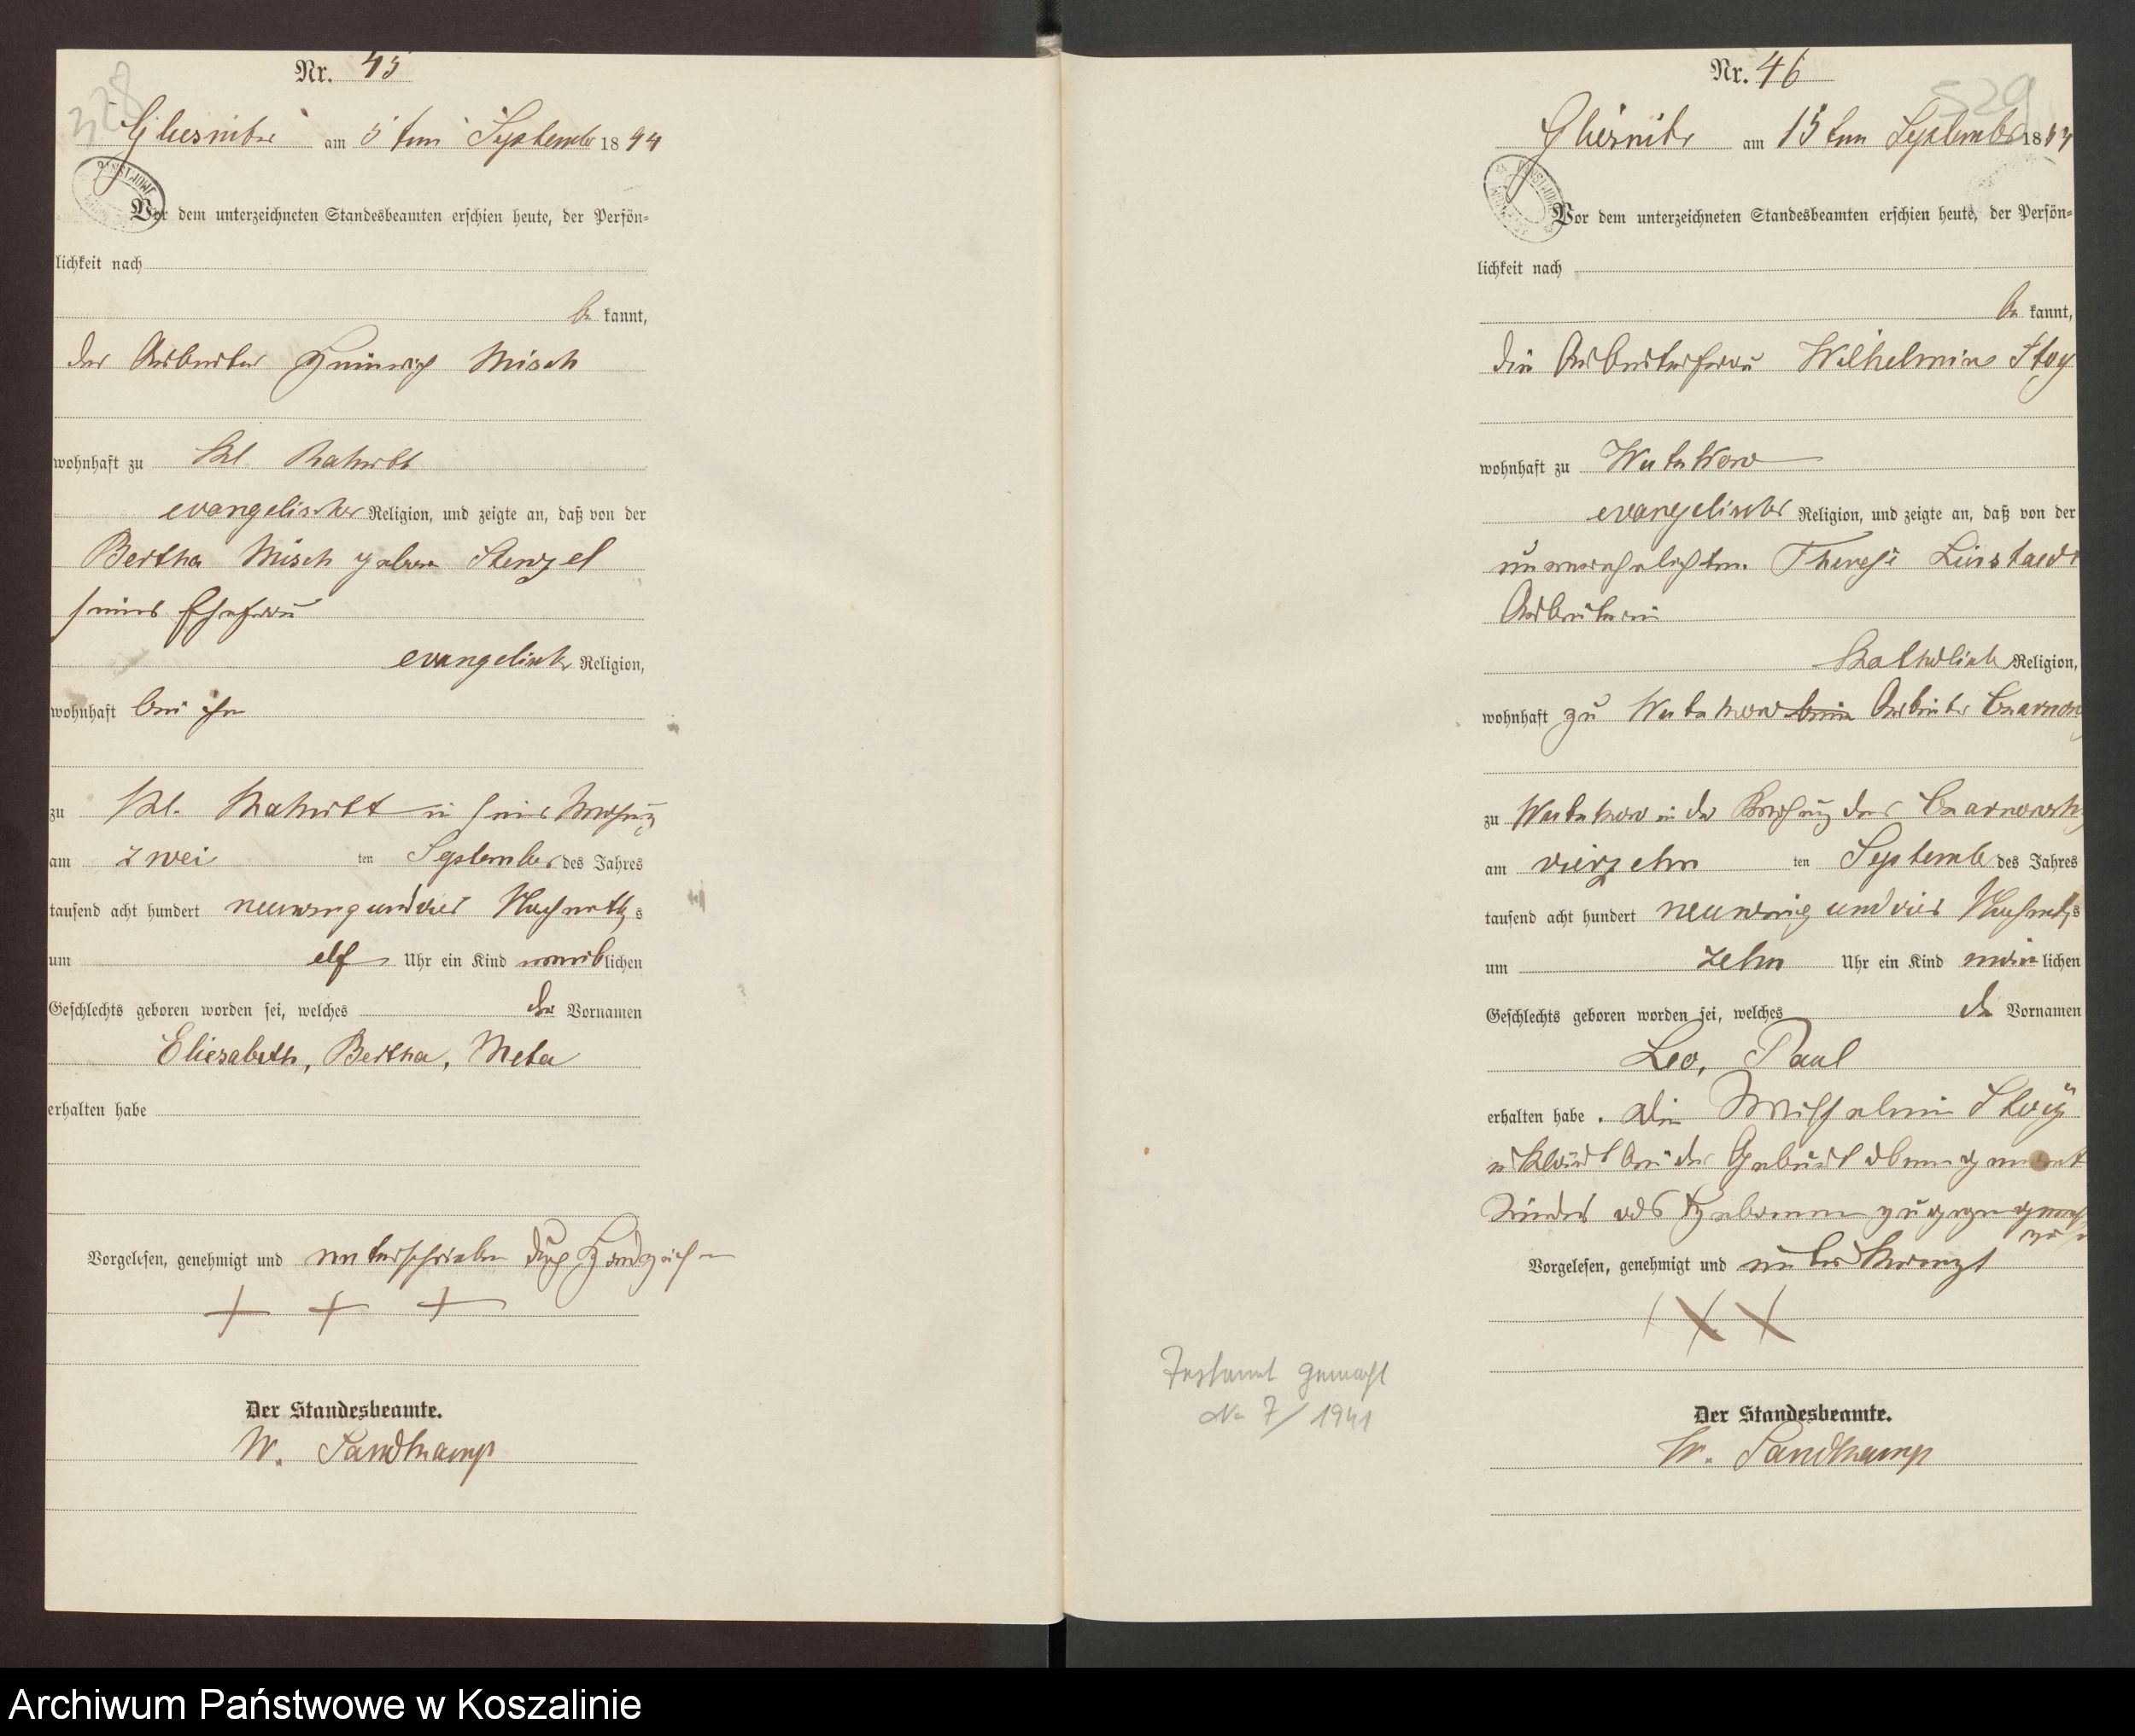 Nr. 45
328
Gliesnitz am 5ten September 1894
Vor dem unterzeichneten Standesbeamten erschien heute, der Persön-
lichkeit nach
be kannt,
der Arbeiter Heinrich Misch
wohnhaft zu Kl.
evangelischer Religion, und zeigte an, daß von der
Bertha Misch geborene Stenzel
seiner Ehefrau
evangelischer Religion,
wohnhaft bei ihm
zu Kl. in seiner Wohnung
am zwei ten September des Jahres
tausend acht hundert neunzig und vier Nachmittags
um elf Uhr ein Kind weiblichen
Geschlechts geboren worden sei, welches die Vornamen
Eliesabeth, Bertha, Meta
erhalten habe
Vorgelesen, genehmigt und unterschrieben durch Handzeichen
+ + +
Der Standesbeamte.
W. Sandkamp
Nr. 46
529
Gliesnitz am 15ten September 1894
Vor dem unterzeichneten Standesbeamten erschien heute, der Persön-
lichkeit nach
be kannt,
die Arbeiterfrau Wilhelmine Stoy
wohnhaft zu Wutzkow
evangelischer Religion, und zeigte an, daß von der
unverehelichten Therese
Arbeiterin
katholischer Religion,
wohnhaft zu Wutzkow beim Arbeiter
zu Wutzkow in der Wohnung des
am vierzehn ten September des Jahres
tausend acht hundert neunzig und vier Nachmittags
um zehn Uhr ein Kind männlichen
Geschlechts geboren worden sei, welches die Vornamen
Leo, Paul
erhalten habe. Die Wilhelmine Stoy
erklärt bei der Geburt obengenannten
Kindes als Hebamme zugegen gewesen
zu sein
Vorgelesen, genehmigt und unterkreuzt
X X X
Testament gemacht
No 7/1941
Der Standesbeamte.
W. Sandkamp
Archiwum Państwowe w Koszalinie